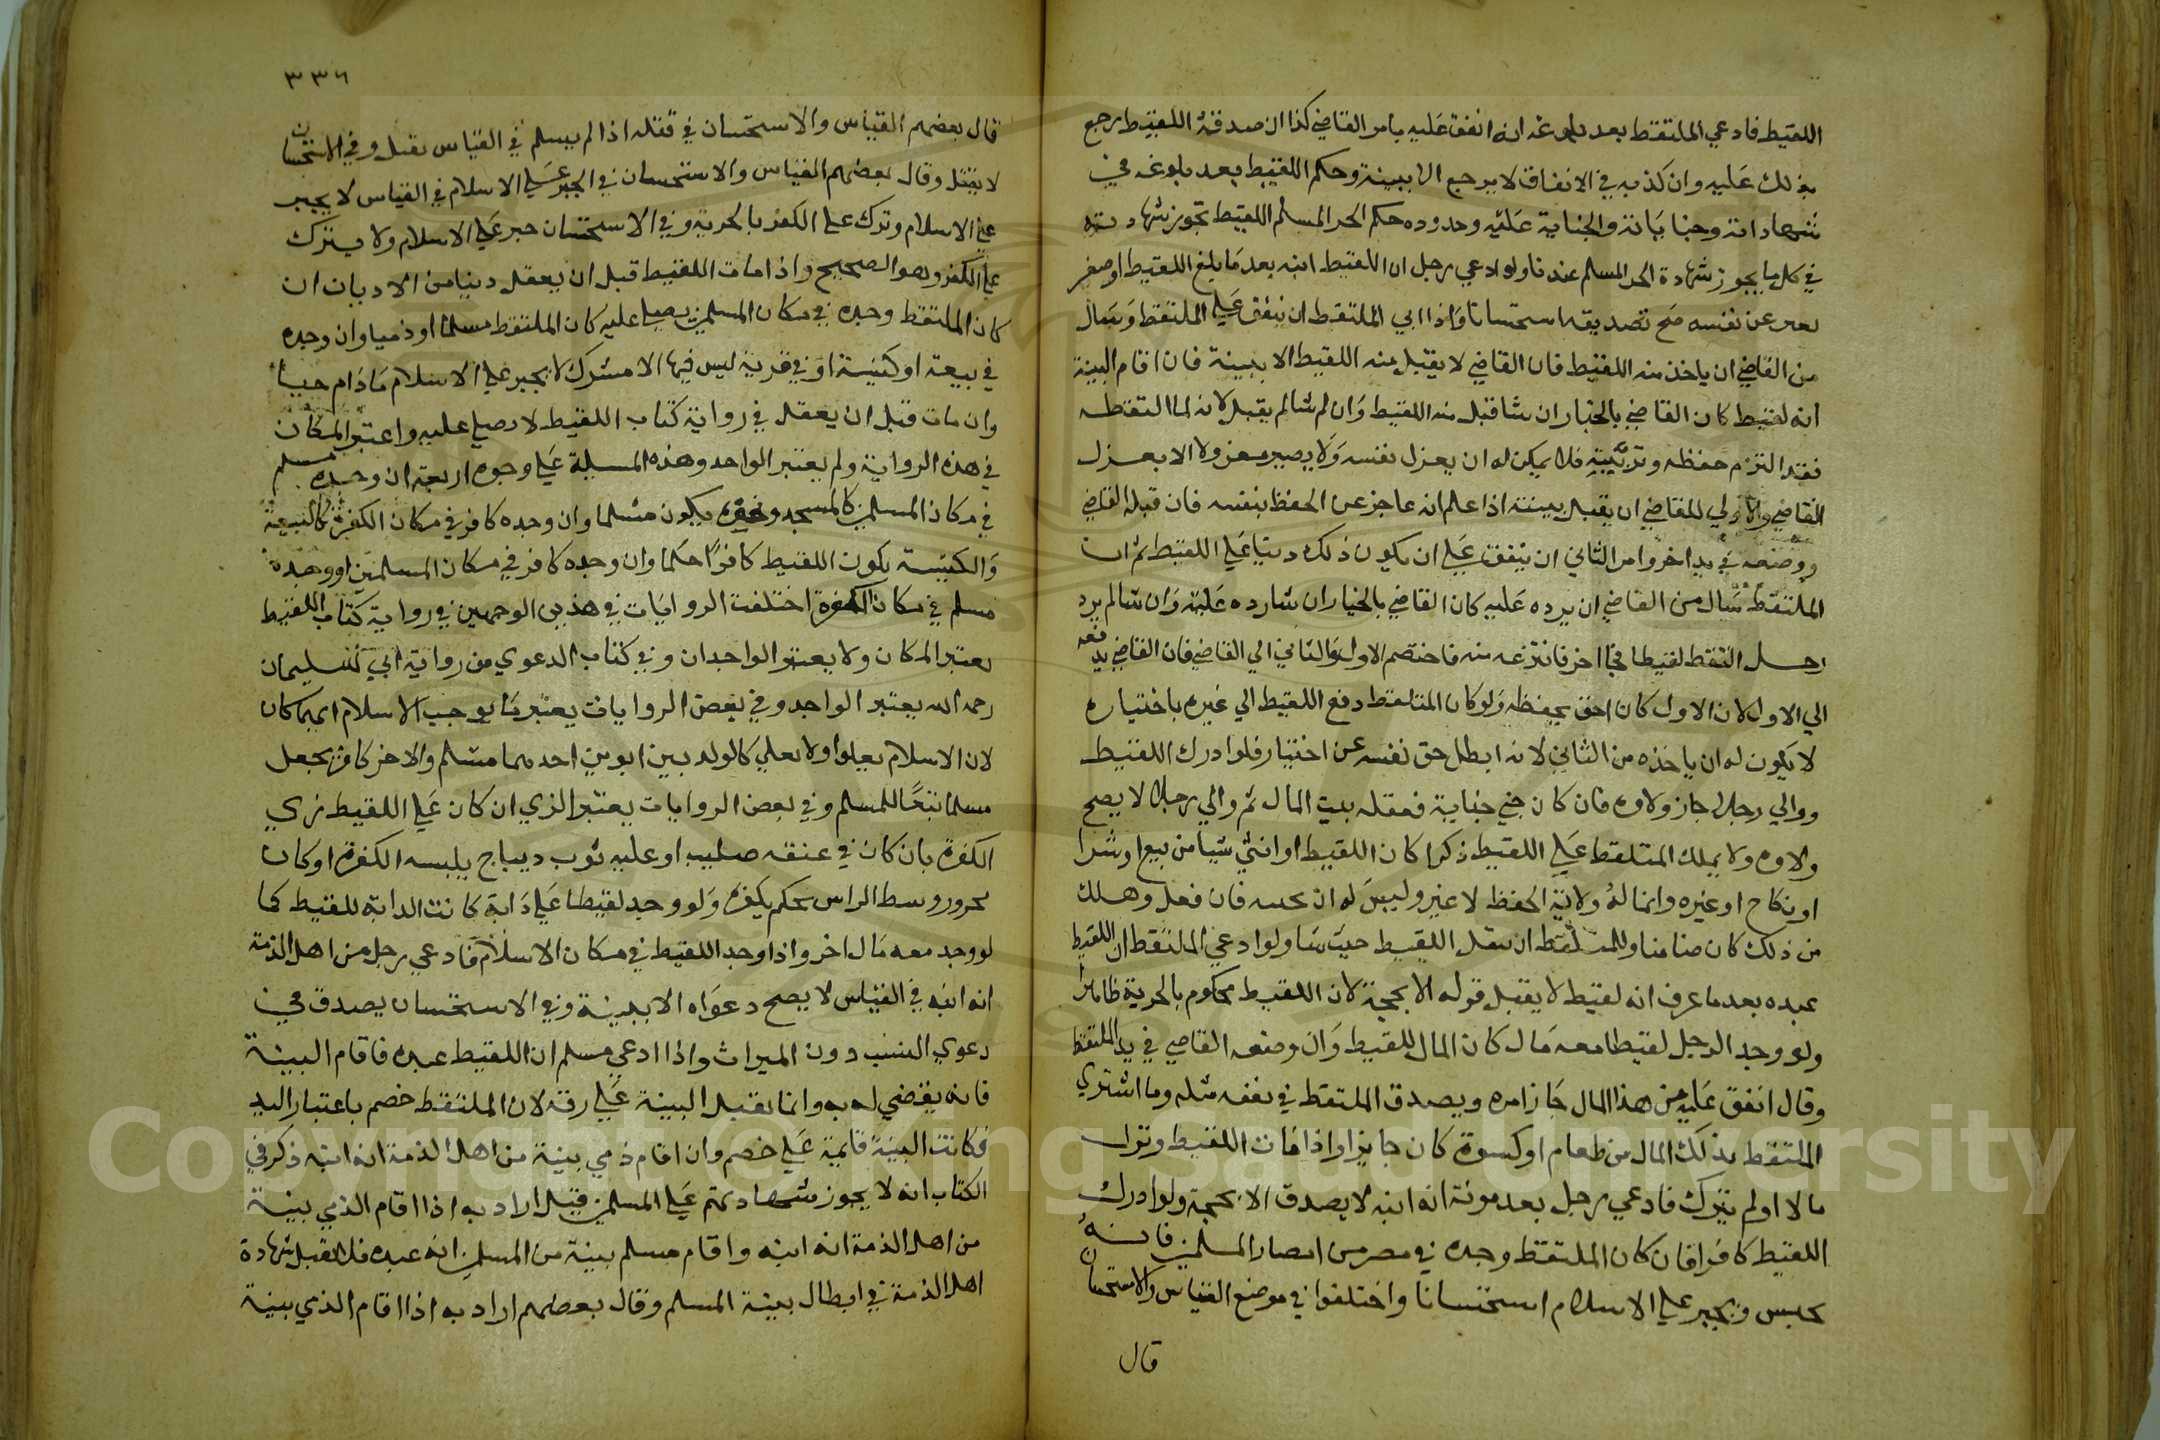 اللقيط فادعي الملتقط بعد بلوغه انه انفق عليه بامر القاضي كذا ان صدقة اللقيط رجع
بذلك عليه وان كذبه في الانفاق لا يرجع الا ببينة وحكم اللقيط بعد بلوغه في
شهاداته وجناياته والجناية عليه وحدوده حكم الحر المسلم اللقيط تجوز شهادته
في كل ما يجوز شهادة الحر المسلم عندنا ولو ادعي رجل ان اللقيط ابنه بعد ما بلغ اللقيط او صغر
يعبر عن نفسه صح تصديقه استحسانا واذا ابي الملتقط ان ينفق علي الملتقط وسال
من القاضي ان ياخذ منه اللقيط فان القاضي لا يقبل منه اللقيط الا ببينة فان اقام البينة
انه لقيط كان القاضي بالخيار ان شا قبل منه اللقيط وان لم شا لم يقبل لانه لما التقطه
فقد التزم حفظه وتربيته فلا يمكن له ان يعزل نفسه ولا يصير معزولا الا بعزل
القاضي والاولي للقاضي ان يقبل ببينته اذا علم انه عاجز عن الحفظ بنفسه فان قبله القاضي
ووضعه في يد اخر وامر الثاني ان ينفق علي ان يكون ذلك دينا علي اللقيط ثم ان
الملتقط سال من القاضي ان يرده عليه كان القاضي بالخيار ان شا رده عليه وان شا لم يرد
رجل التقط لقيطا فجا اخر فانتزعه منه فاختصم الاول والثاني الي القاضي فان القاضي يدفعه
الي الاول لان الاول كان احق بحفظه ولو كان الملتقط دفع اللقيط الي غيره باختياره
لا يكون له ان ياخذه من الثاني لانه ابطل حق نفسه عن اختيار فلو ادرك اللقيط
ووالي رجلا جاز ولاوه فان كان جني جناية فعقله بيت المال ثم والي رجلا لا يصح
ولاوه ولا يملك المتلقط علي اللقيط ذكرا كان اللقيط او انثي شيا من بيع او شرا
او نكاح او غيره وانما له ولاية الحفظ لا غير وليس له ان فان فعل وهلك
من ذلك كان ضامنا وللمتلقط ان ينقل اللقيط حيث شا ولو ادعي الملتقط ان اللقيط
عبده بعد ما عرف انه لقيط لا يقبل قوله الا بحجة لان اللقيط محكوم بالحرية ظاهرا
ولو وجد الرجل لقيطا معه مال كان المال للقيط وان وضعه القاضي في يد الملتقط
وقال انفق عليه من هذا المال جاز امره ويصدق الملتقط في نفقة مثله وما اشتري
الملتقط بذلك المال من طعام او كسوة كان جايزا واذا مات اللقيط وترك
مالا او لم يترك فادعي رجل بعد موته انه ابنه لا يصدق الا بحجة ولو ادرك
اللقيط كافرا فان كان الملتقط وجده في مصر من امصار المسلمين فانه
يحبس ويجبر علي الاسلام استحسانا واختلفوا في موضع القياس والاستحسان
قال
٣٣٦
قال بعضهم القياس والاستحسان في قتله اذا لم يسلم في القياس يقتل وفي الاستحسان
لا يقتل وقال بعضهم القياس والاستحسان في الجبر علي الاسلام في القياس لا يجبر
علي الاسلام وترك علي الكفر بالحرية وفي الاستحسان جبر علي الاسلام ولا يترك
علي الكفر وهو الصحيح واذا مات اللقيط قبل ان يعقل دينا من الاديان ان
كان الملتقط وجده في مكان المسلمين يصلي عليه كان الملتقط مسلما او ذميا وان وجده
في بيعة او كنيسة او في قرية ليس فيها الا مشرك لا يجبر علي الاسلام ما دام حيا
وان مات قبل ان يعقل في رواية كتاب اللقيط لا يصلي عليه واعتبر المكان
في هذه الرواية ولم يعتبر الواحد وهذه المسيلة علي وجوه اربعة ان وجده مسلم
في مكان المسلمين كالمسجد ونحوه يكون مسلما وان وجده كافر في مكان الكفرة كالبيعة
والكنيسة يكون اللقيط كافرا حكما وان وجده كافر في مكان المسلمين او وجده
مسلم في مكان الكفرة اختلفت الروايات في هذين الوجهين في رواية كتاب اللقيط
يعتبر المكان ولا يعتبر الواجدان وفي كتاب الدعوي من رواية ابي سليمان
رحمه الله يعتبر الواجد وفي بعض الروايات يعتبر ما يوجب الاسلام ايهما كان
لان الاسلام يعلوا ولا يعلي كالولد بين ابوين احدهما مسلم والاخر كافر يجعل
مسلما تبعا للمسلم وفي بعض الروايات يعتبر الزي ان كان علي اللقيط زي
الكفرة بان كان في عنقه صليب او عليه ثوب ديباج يلبسه الكفرة او كان
وسط الراس يحكم بكفره ولو وجد لقيطا علي دابة كانت الدابة للقيط كما
لو وجد معه مال اخر واذا وجد اللقيط في مكان الاسلام فادعي رجل من اهل الذمة
انه ابنه في القياس لا يصح دعواه الا ببينة وفي الاستحسان يصدق في
دعوي النسب دون الميراث واذا ادعي مسلم ان اللقيط عبده فاقام البينة
فانه يقضي له به وانما تقبل البينة علي رقه لان الملتقط خصم باعتبار اليد
فكانت البينة قايمة علي خصم وان اقام ذمي بينة من اهل الذمة انه ابنه ذكر في
الكتاب انه لا يجوز شهادتهم علي المسلمين قيل اراد به اذا اقام الذمي بينة
من اهل الذمة انه ابنه واقام مسلم بينة من المسلمين انه عبده فلا تقبل شهادة
اهل الذمة في ابطال بينة المسلم وقال بعضهم اراد به اذا اقام الذي بينة